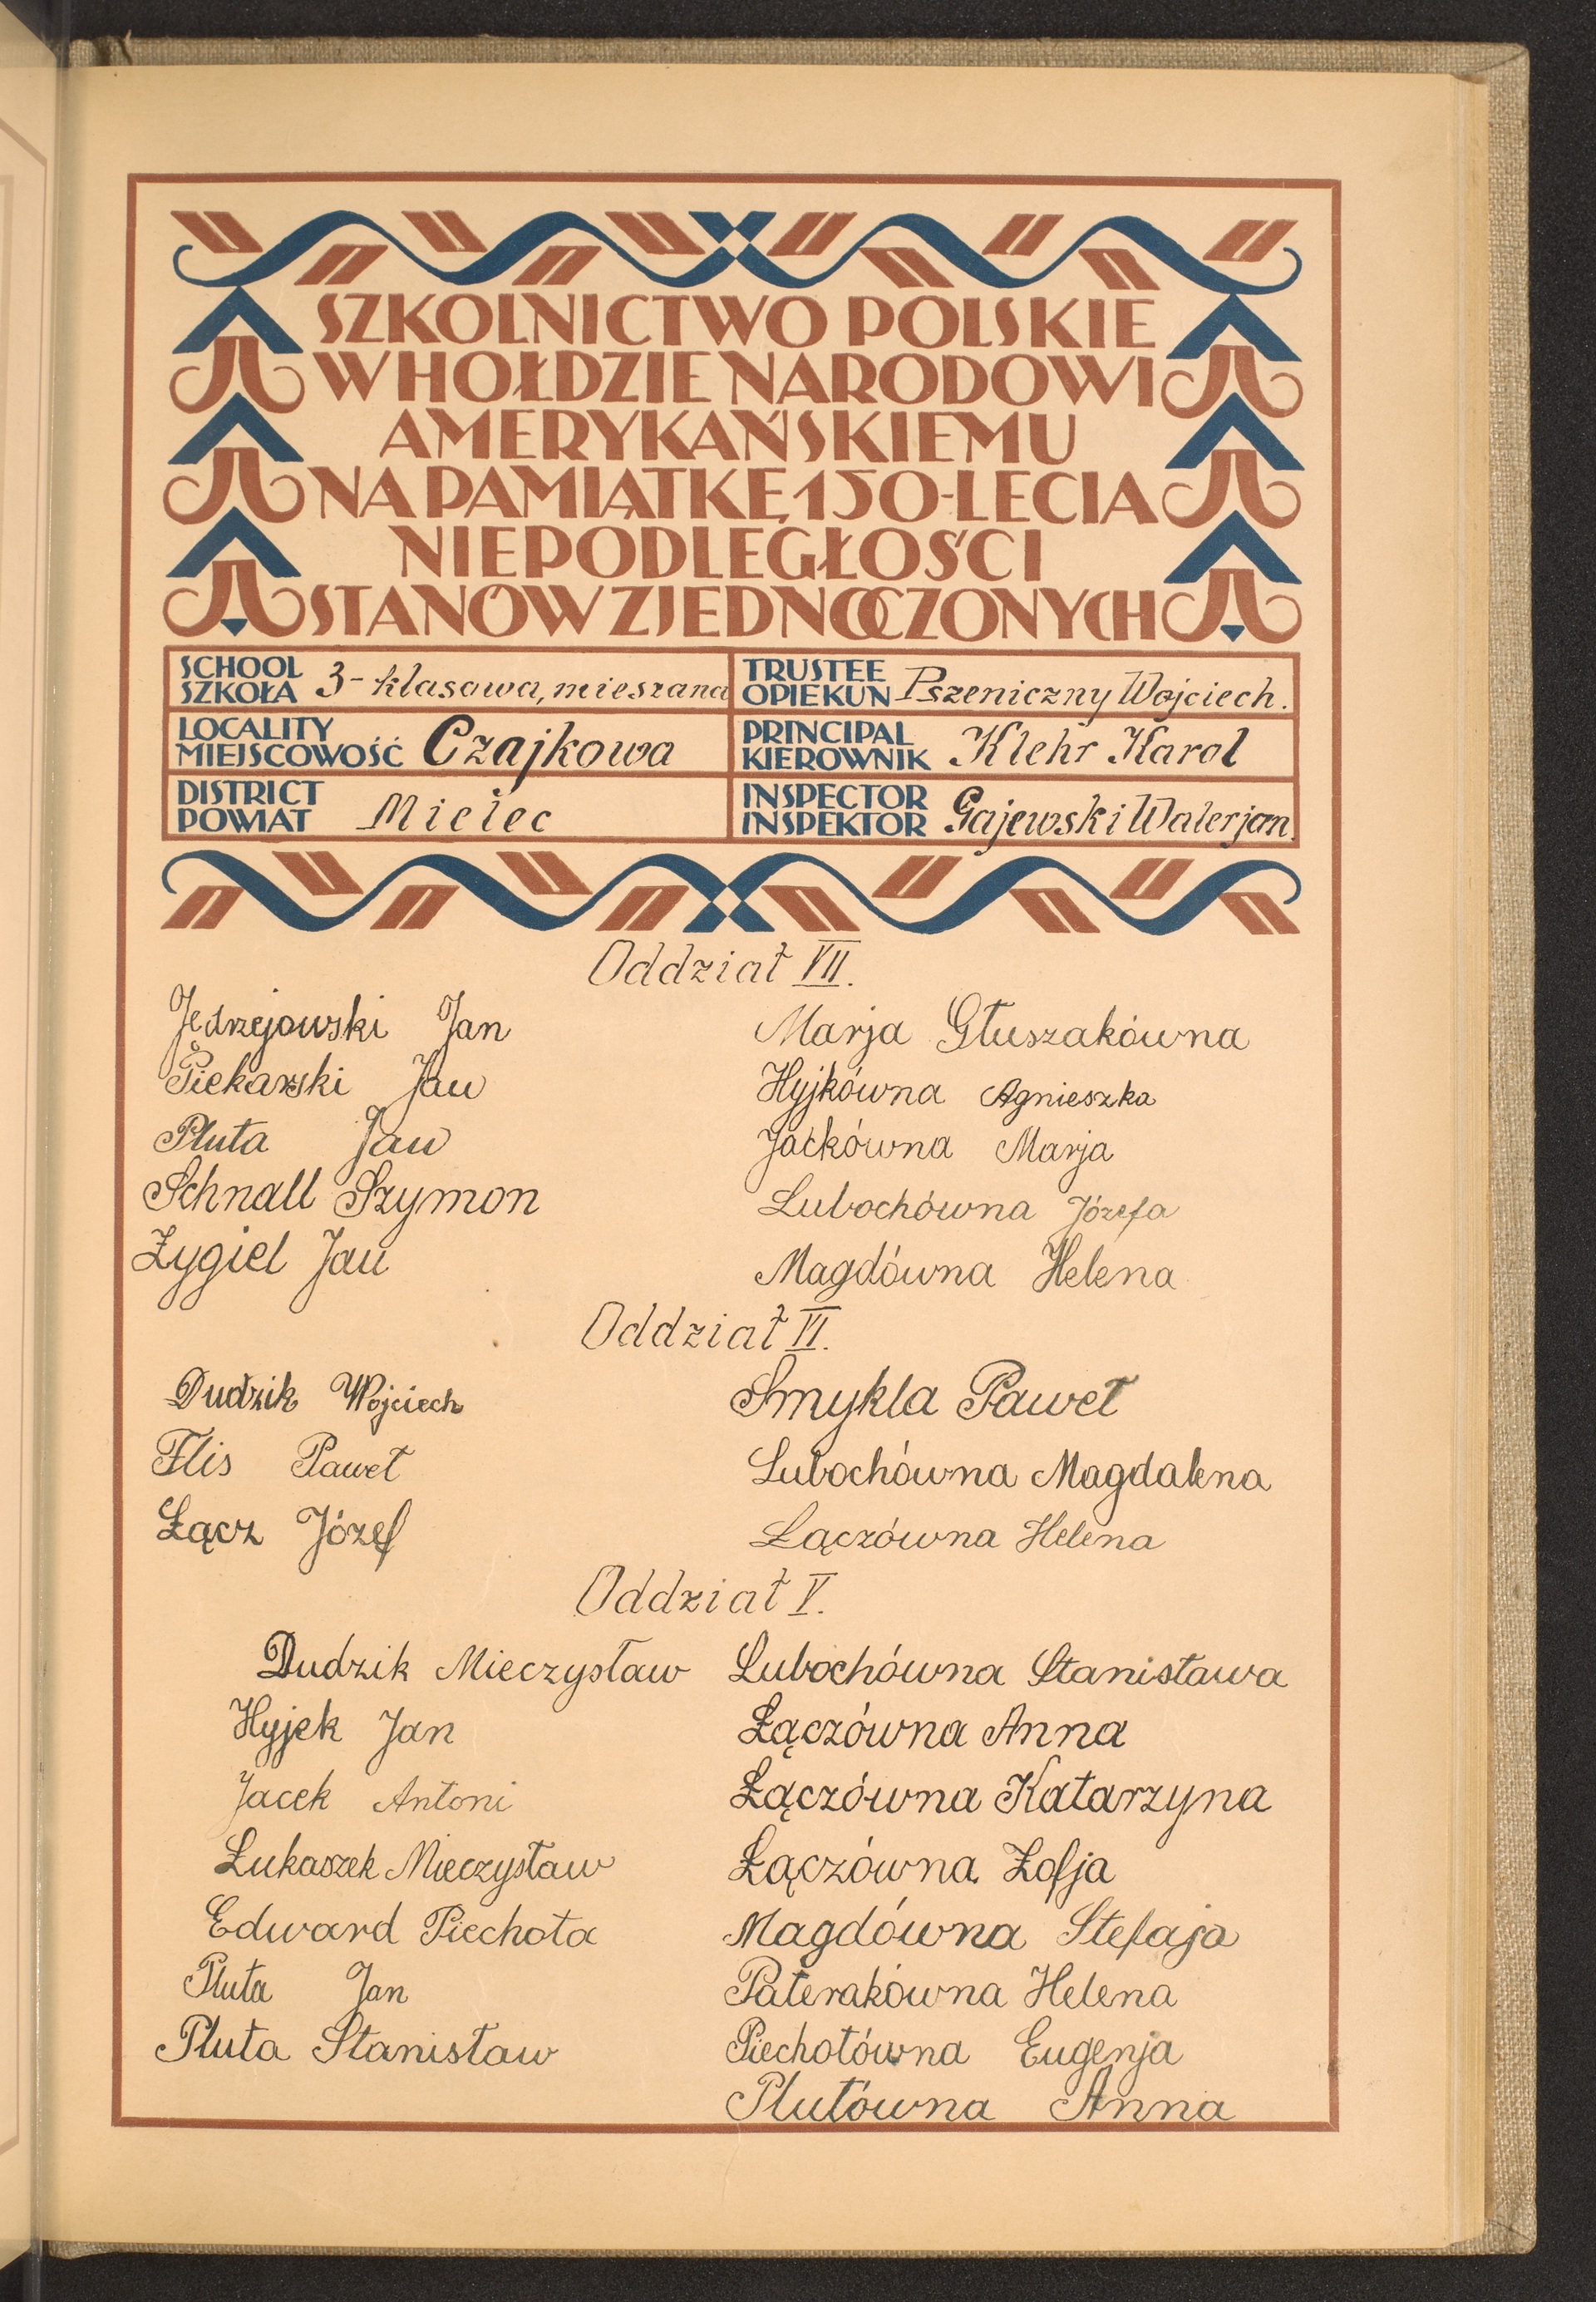 SZKOLNICTWO POLSKIE
W HOŁDZIE NARODOWI
AMERYKAŃSKIEMU
NA PAMIĄTKĘ 150-LECIA
NIEPODLEGŁOŚCI
STANÓW ZJEDNOCZONYCH
SCHOOL
SZKOŁA 3-klasowa, mieszana
TRUSTEE
OPIEKUN Pszeniczny Wojciech.
LOCALITY
MIEJSCOWOŚĆ Czajkowa
PRINCIPAL
KIEROWNIK Klehr Karol
DISTRICT
POWIAT Mielec
INSPECTOR
INSPEKTOR Gajewski Walerjan.
Oddział VII.
Jędrzejowski Jan
Piekarski Jan
Pluta Jan
Schnall Szymon
Zygiel Jan
Marja Głuszakówna
Hyjkówna Agnieszka
Jackówna Marja
Lubochówna Józefa
Magdówna Helena
Oddział VI.
Dudzik Wojciech
Flis Paweł
Łącz Józef
Smykla Paweł
Lubochówna Magdalena
Łączówna Helena
Oddział V.
Dudzik Mieczysław
Hyjek Jan
Jacek Antoni
Łukaszek Mieczysław
Edward Piechota
Pluta Jan
Pluta Stanisław
Lubochówna Stanisława
Łączówna Anna
Łączówna Katarzyna
Łączówna Zofja
Magdówna Stefaja
Paterakówna Helena
Piechotówna Eugenja
Plutówna Anna